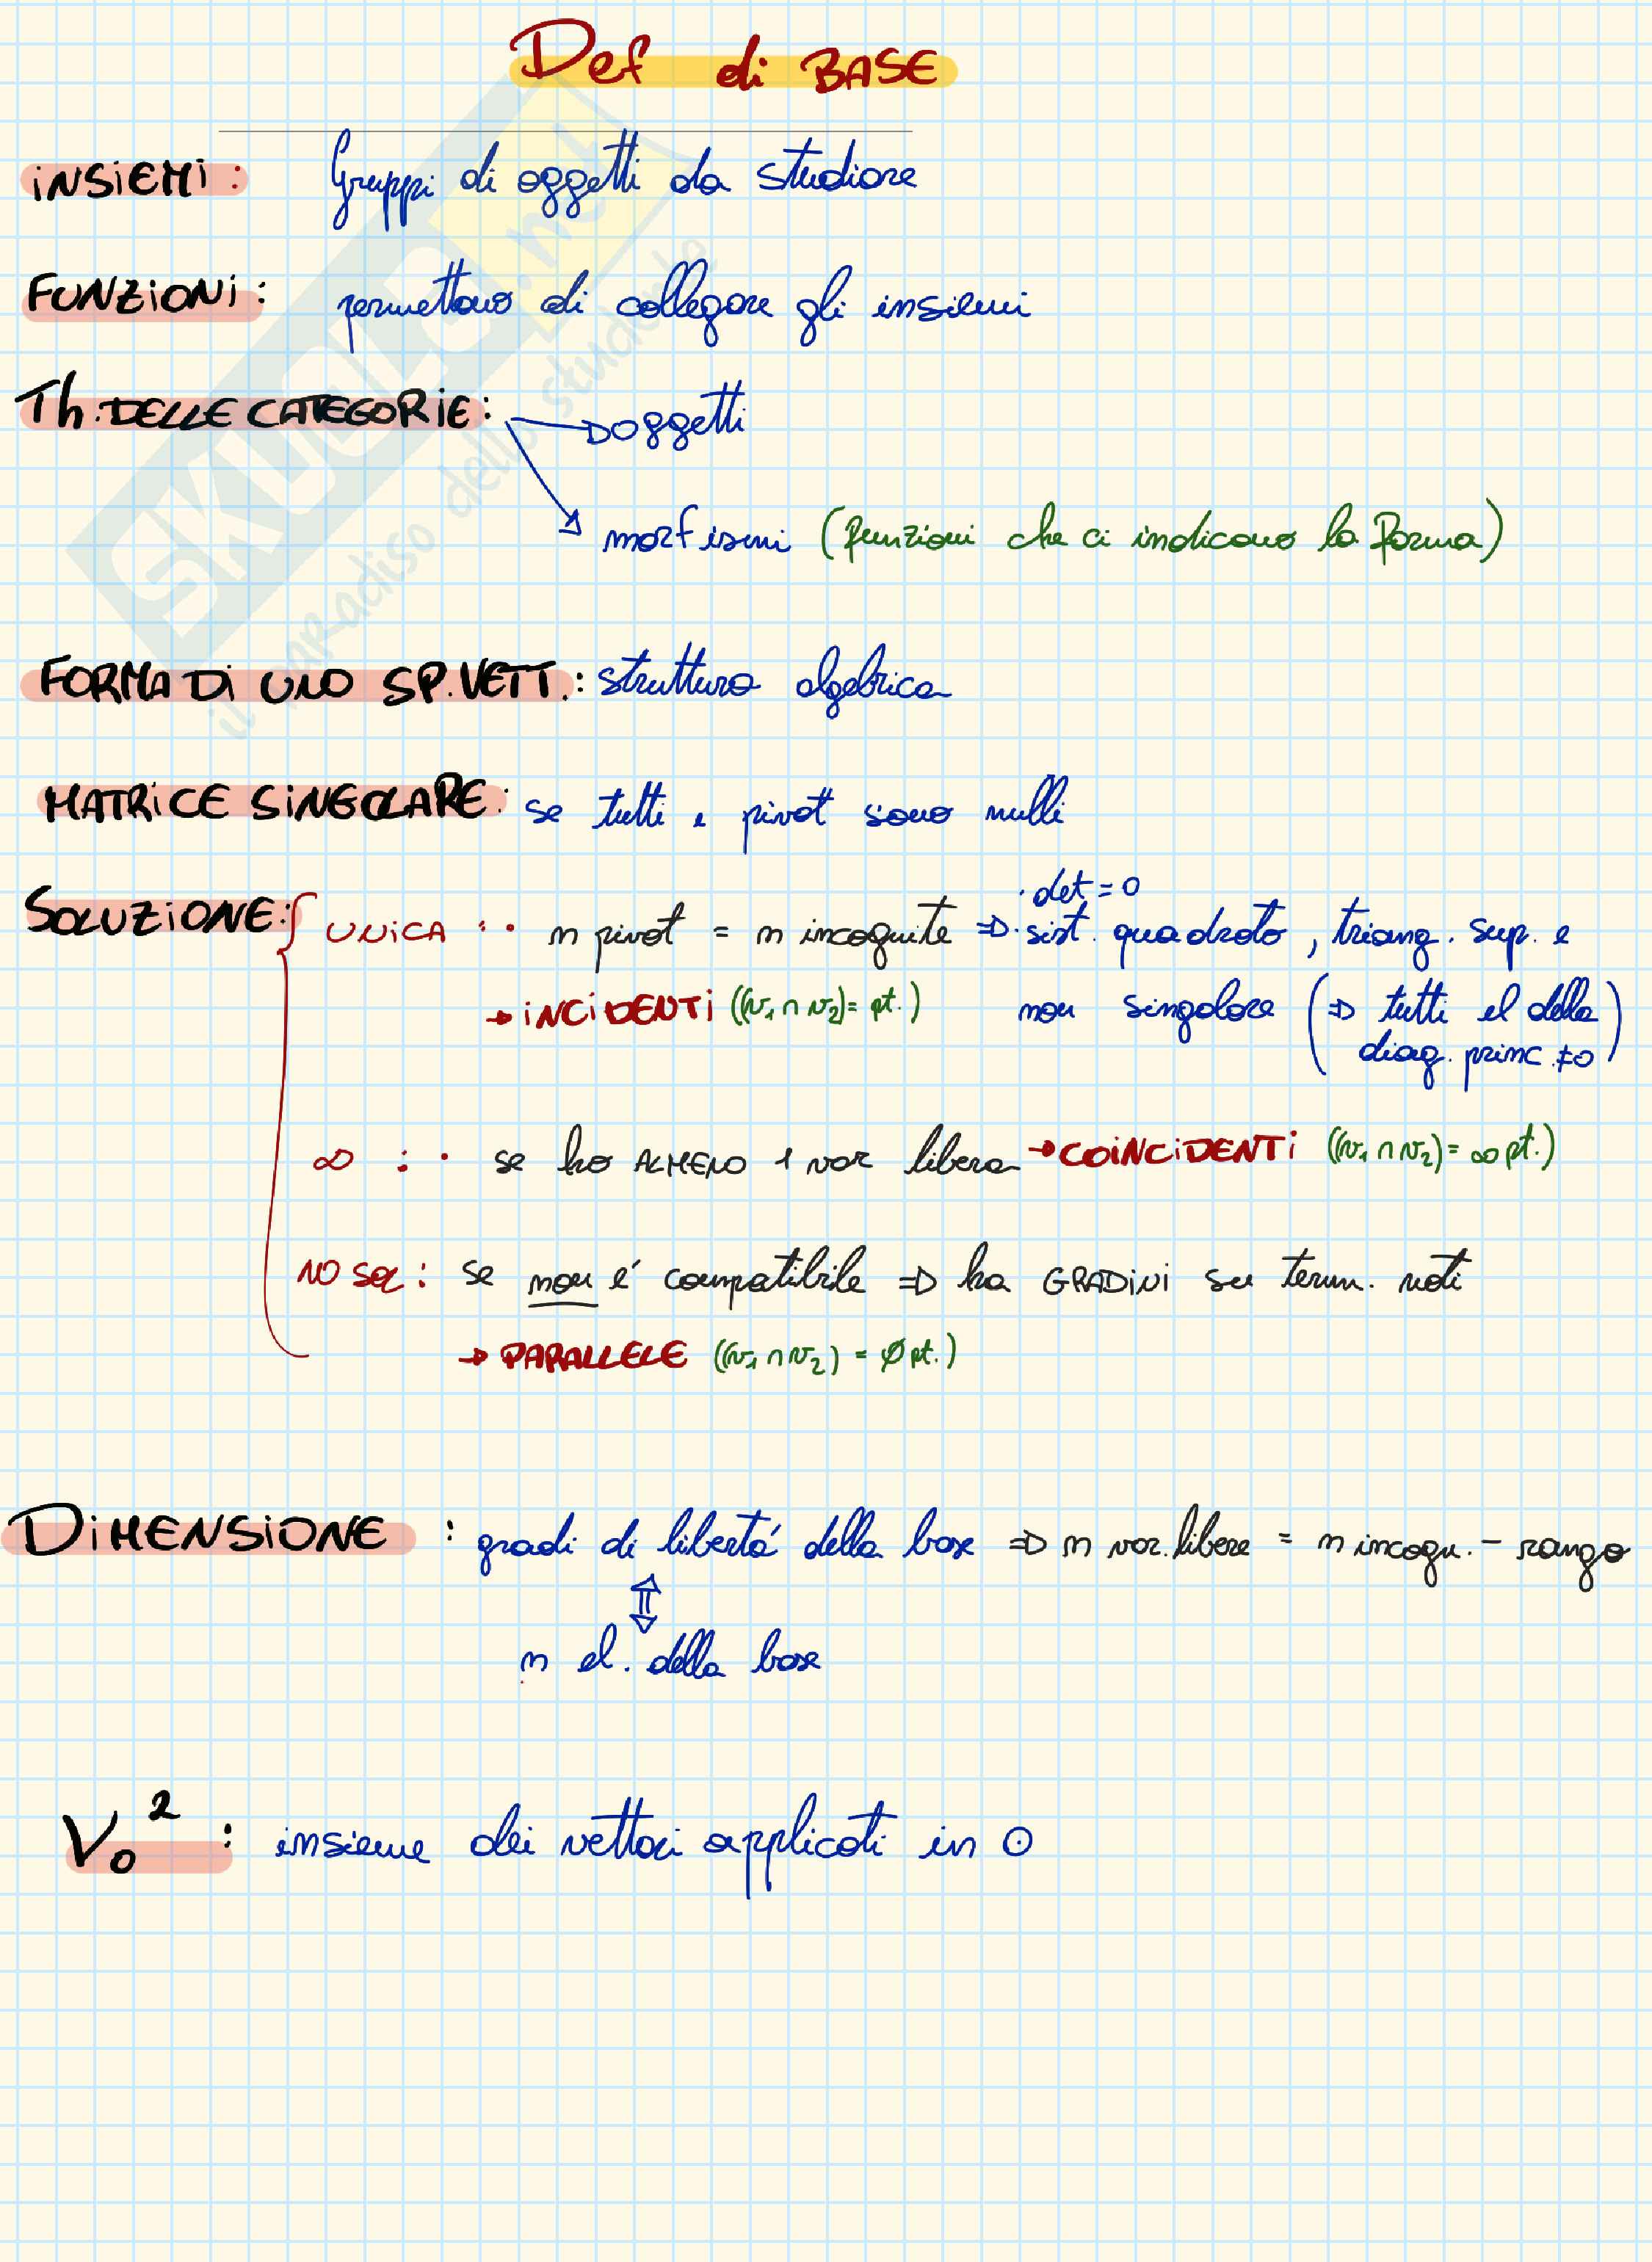 Def di BASE
INSIEMI: Gruppi di oggetti da studiare
FUNZIONI: permettono di collegare gli insiemi
Th. DELLE CATEGORIE: → oggetti
→ morfismi (funzioni che ci indicano la forma)
FORMA DI UNO SP. VETT.: struttura algebrica
MATRICE SINGOLARE: se tutti i pivot sono nulli
· det = 0
SOLUZIONE: { UNICA : · n pivot = n incognite ⇒ · sist. quadrato, triang. sup. e
→ INCIDENTI ((r₁ ∩ r₂) = pt.) non singolare (⇒ tutti el della
diag. princ. ≠ 0)
∞ : · se ho ALMENO 1 var libera → COINCIDENTI ((r₁ ∩ r₂) = ∞ pt.)
NO SOL : se non é compatibile ⇒ ha GRADINI su term. noti
→ PARALLELE ((r₁ ∩ r₂) = ∅ pt.)
DIMENSIONE : gradi di libertá della base ⇒ n var. libere = n incogn. - rango
⇕
n el. della base
V₀² : insieme dei vettori applicati in O
SKUOLA.net
il paradiso dello studente